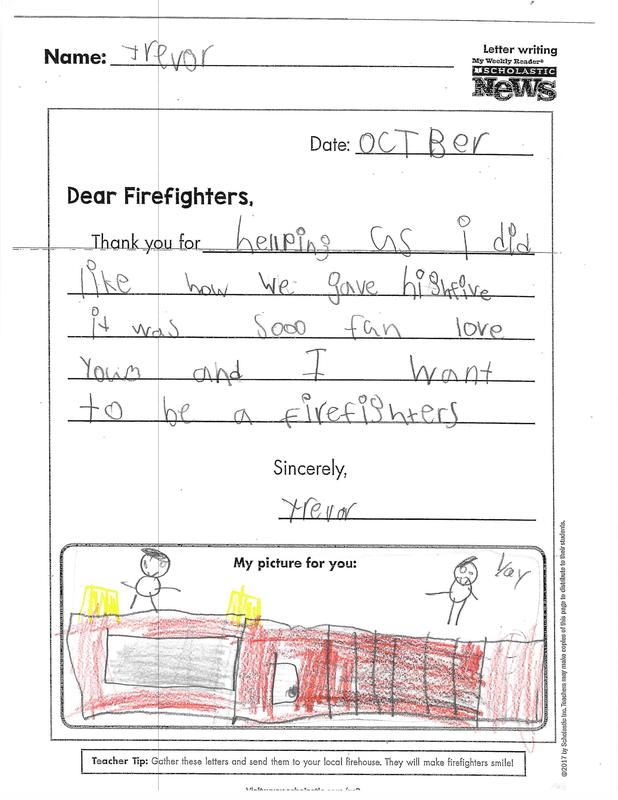 Name: Trevor
Letter writing
My Weekly Reader®
SCHOLASTIC
News
Date: OCTBer
Dear Firefighters,
Thank you for hellping as i did
like how we gave highfive
it was sooo fan love
and I want
to be a firefighters
Sincerely,
trevor
My picture for you:
Yay
Teacher Tip: Gather these letters and send them to your local firehouse. They will make firefighters smile!
©2017 by Scholastic Inc. Teachers may make copies of this page to distribute to their students.